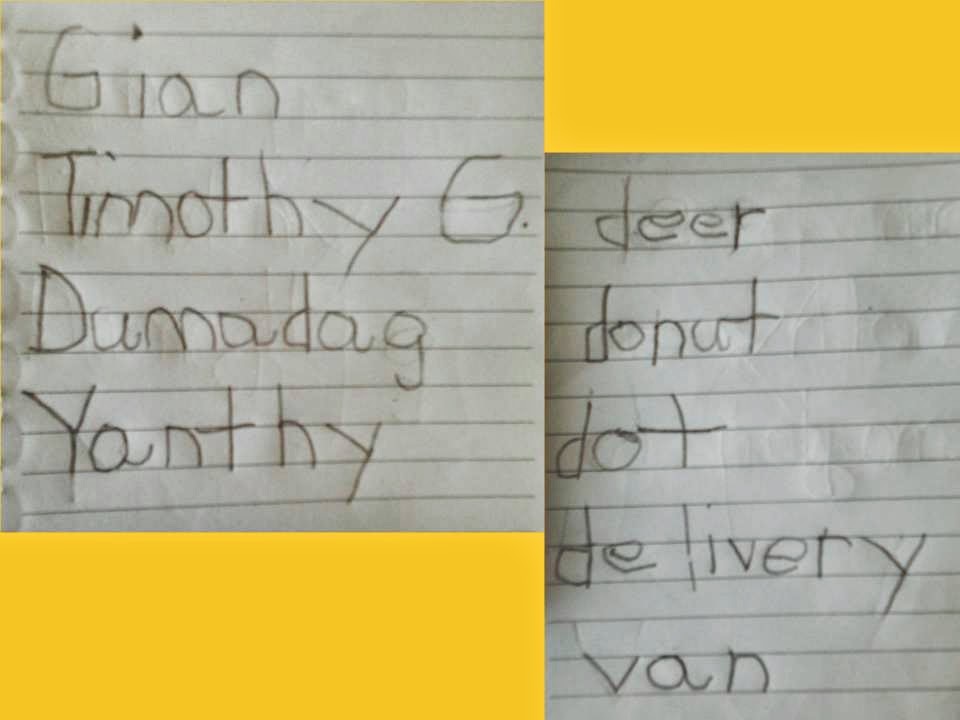 Gian
Timothy G.
Dumadag
Yanthy
deer
donut
dot
delivery
van